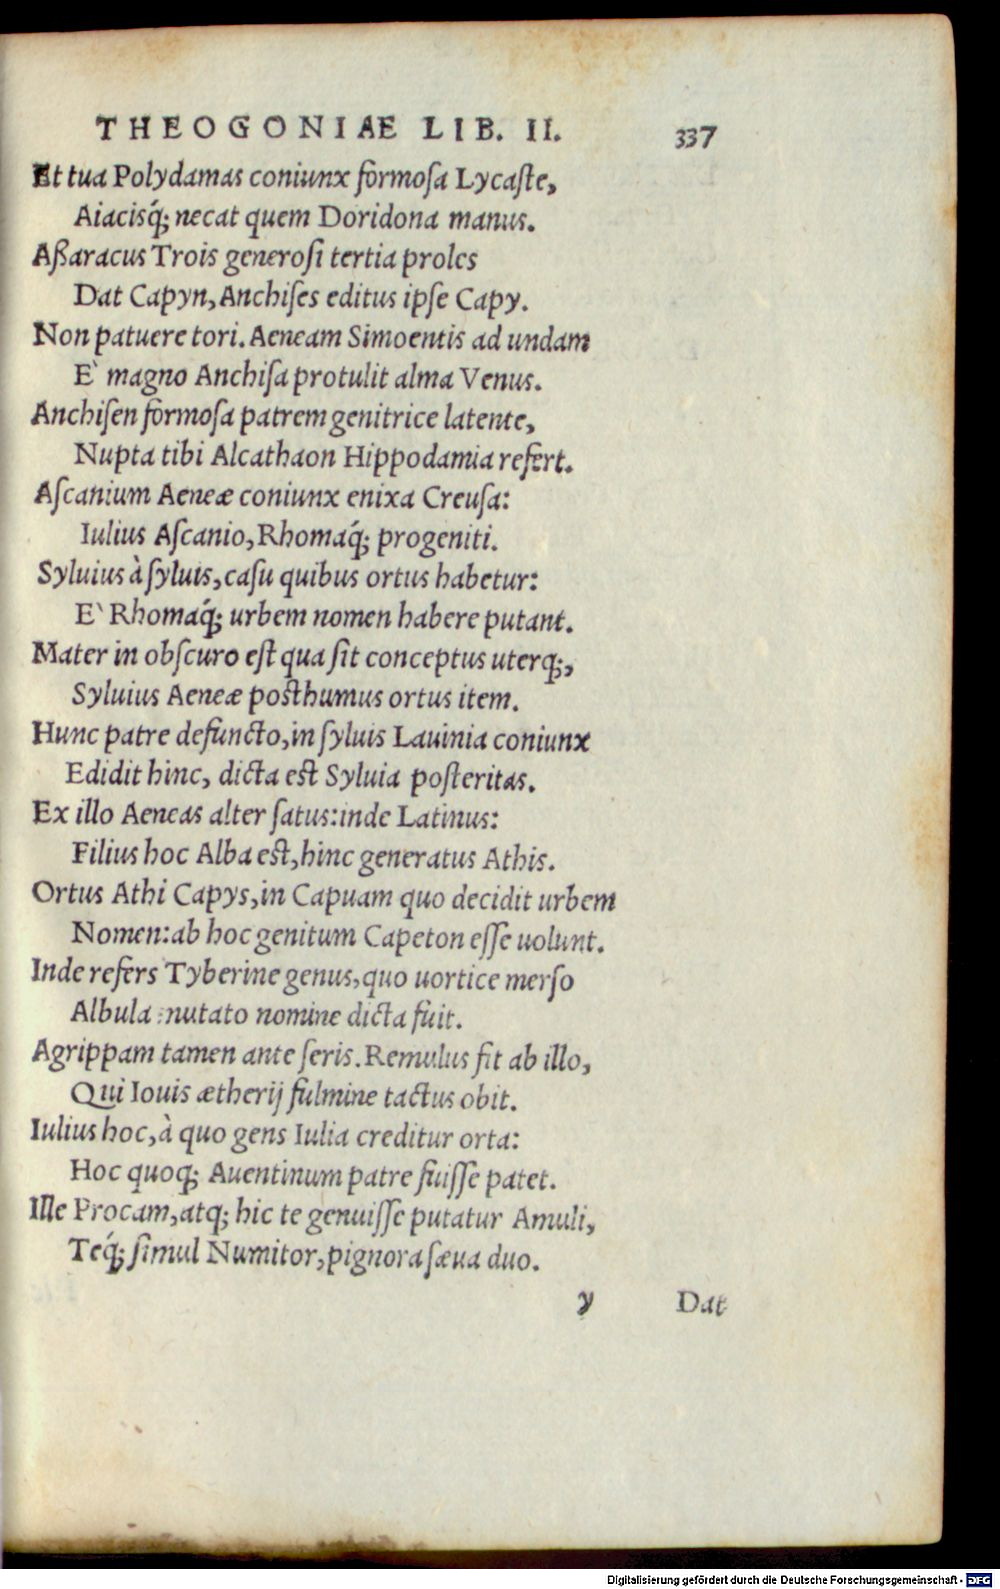 THEOGONIAE LIB. II. 337
Et tua Polydamas coniunx formoſa Lycaſte,
Aiacisq́; necat quem Doridona manus.
Aßaracus Trois generoſi tertia proles
Dat Capyn, Anchiſes editus ipſe Capy.
Non patuere tori. Aeneam Simoentis ad undam
E` magno Anchiſa protulit alma Venus.
Anchiſen formoſa patrem genitrice latente,
Nupta tibi Alcathaon Hippodamia refert.
Aſcanium Aeneæ coniunx enixa Creuſa:
Iulius Aſcanio, Rhomaq́; progeniti.
Syluius à ſyluis, caſu quibus ortus habetur:
E` Rhomaq́; urbem nomen habere putant.
Mater in obſcuro eſt qua ſit conceptus uterq;,
Syluius Aeneæ poſthumus ortus item.
Hunc patre defuncto, in ſyluis Lauinia coniunx
Edidit hinc, dicta eſt Syluia poſteritas.
Ex illo Aeneas alter ſatus: inde Latinus:
Filius hoc Alba eſt, hinc generatus Athis.
Ortus Athi Capys, in Capuam quo decidit urbem
Nomen: ab hoc genitum Capeton eſſe uolunt.
Inde refers Tyberine genus, quo uortice merſo
Albula mutato nomine dicta fuit.
Agrippam tamen ante ſeris. Remulus fit ab illo,
Qui Iouis ætherij fulmine tactus obit.
Iulius hoc, à quo gens Iulia creditur orta:
Hoc quoq; Auentinum patre fuiſſe patet.
Ille Procam, atq; hic te genuiſſe putatur Amuli,
Teq́; ſimul Numitor, pignora ſæua duo.
y Dat
Digitalisierung gefördert durch die Deutsche Forschungsgemeinschaft - DFG